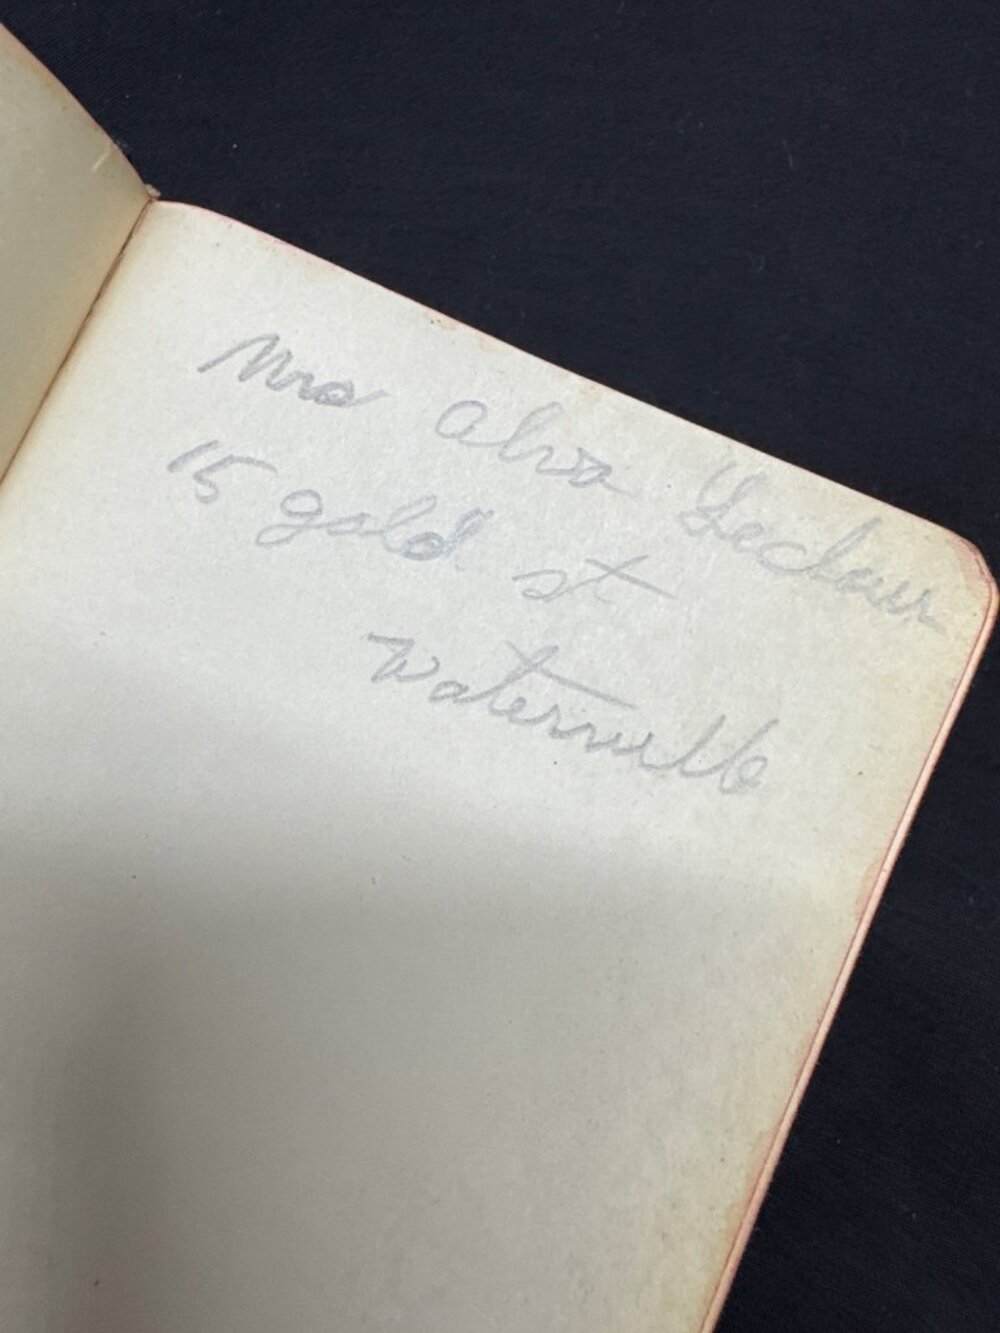 Mrs Alva Leclair
15 gold st
Waterville